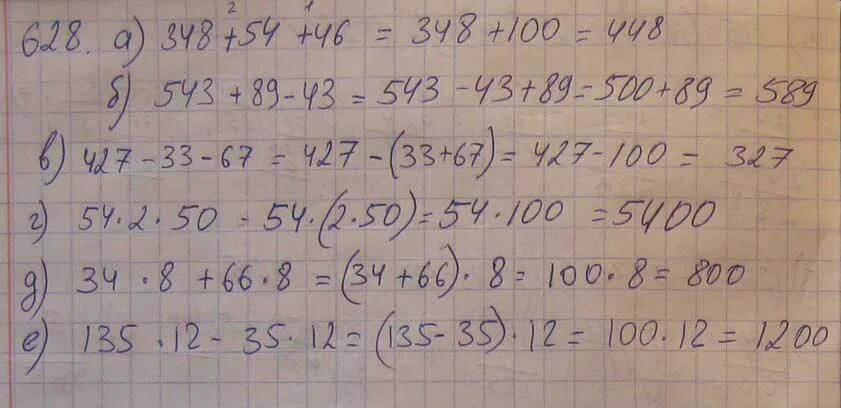 2 1
628. а) 348 + 54 + 46 = 348 + 100 = 448
б) 543 + 89 - 43 = 543 - 43 + 89 = 500 + 89 = 589
в) 427 - 33 - 67 = 427 - (33 + 67) = 427 - 100 = 327
г) 54 · 2 · 50 = 54 · (2 · 50) = 54 · 100 = 5400
д) 34 · 8 + 66 · 8 = (34 + 66) · 8 = 100 · 8 = 800
е) 135 · 12 - 35 · 12 = (135 - 35) · 12 = 100 · 12 = 1200